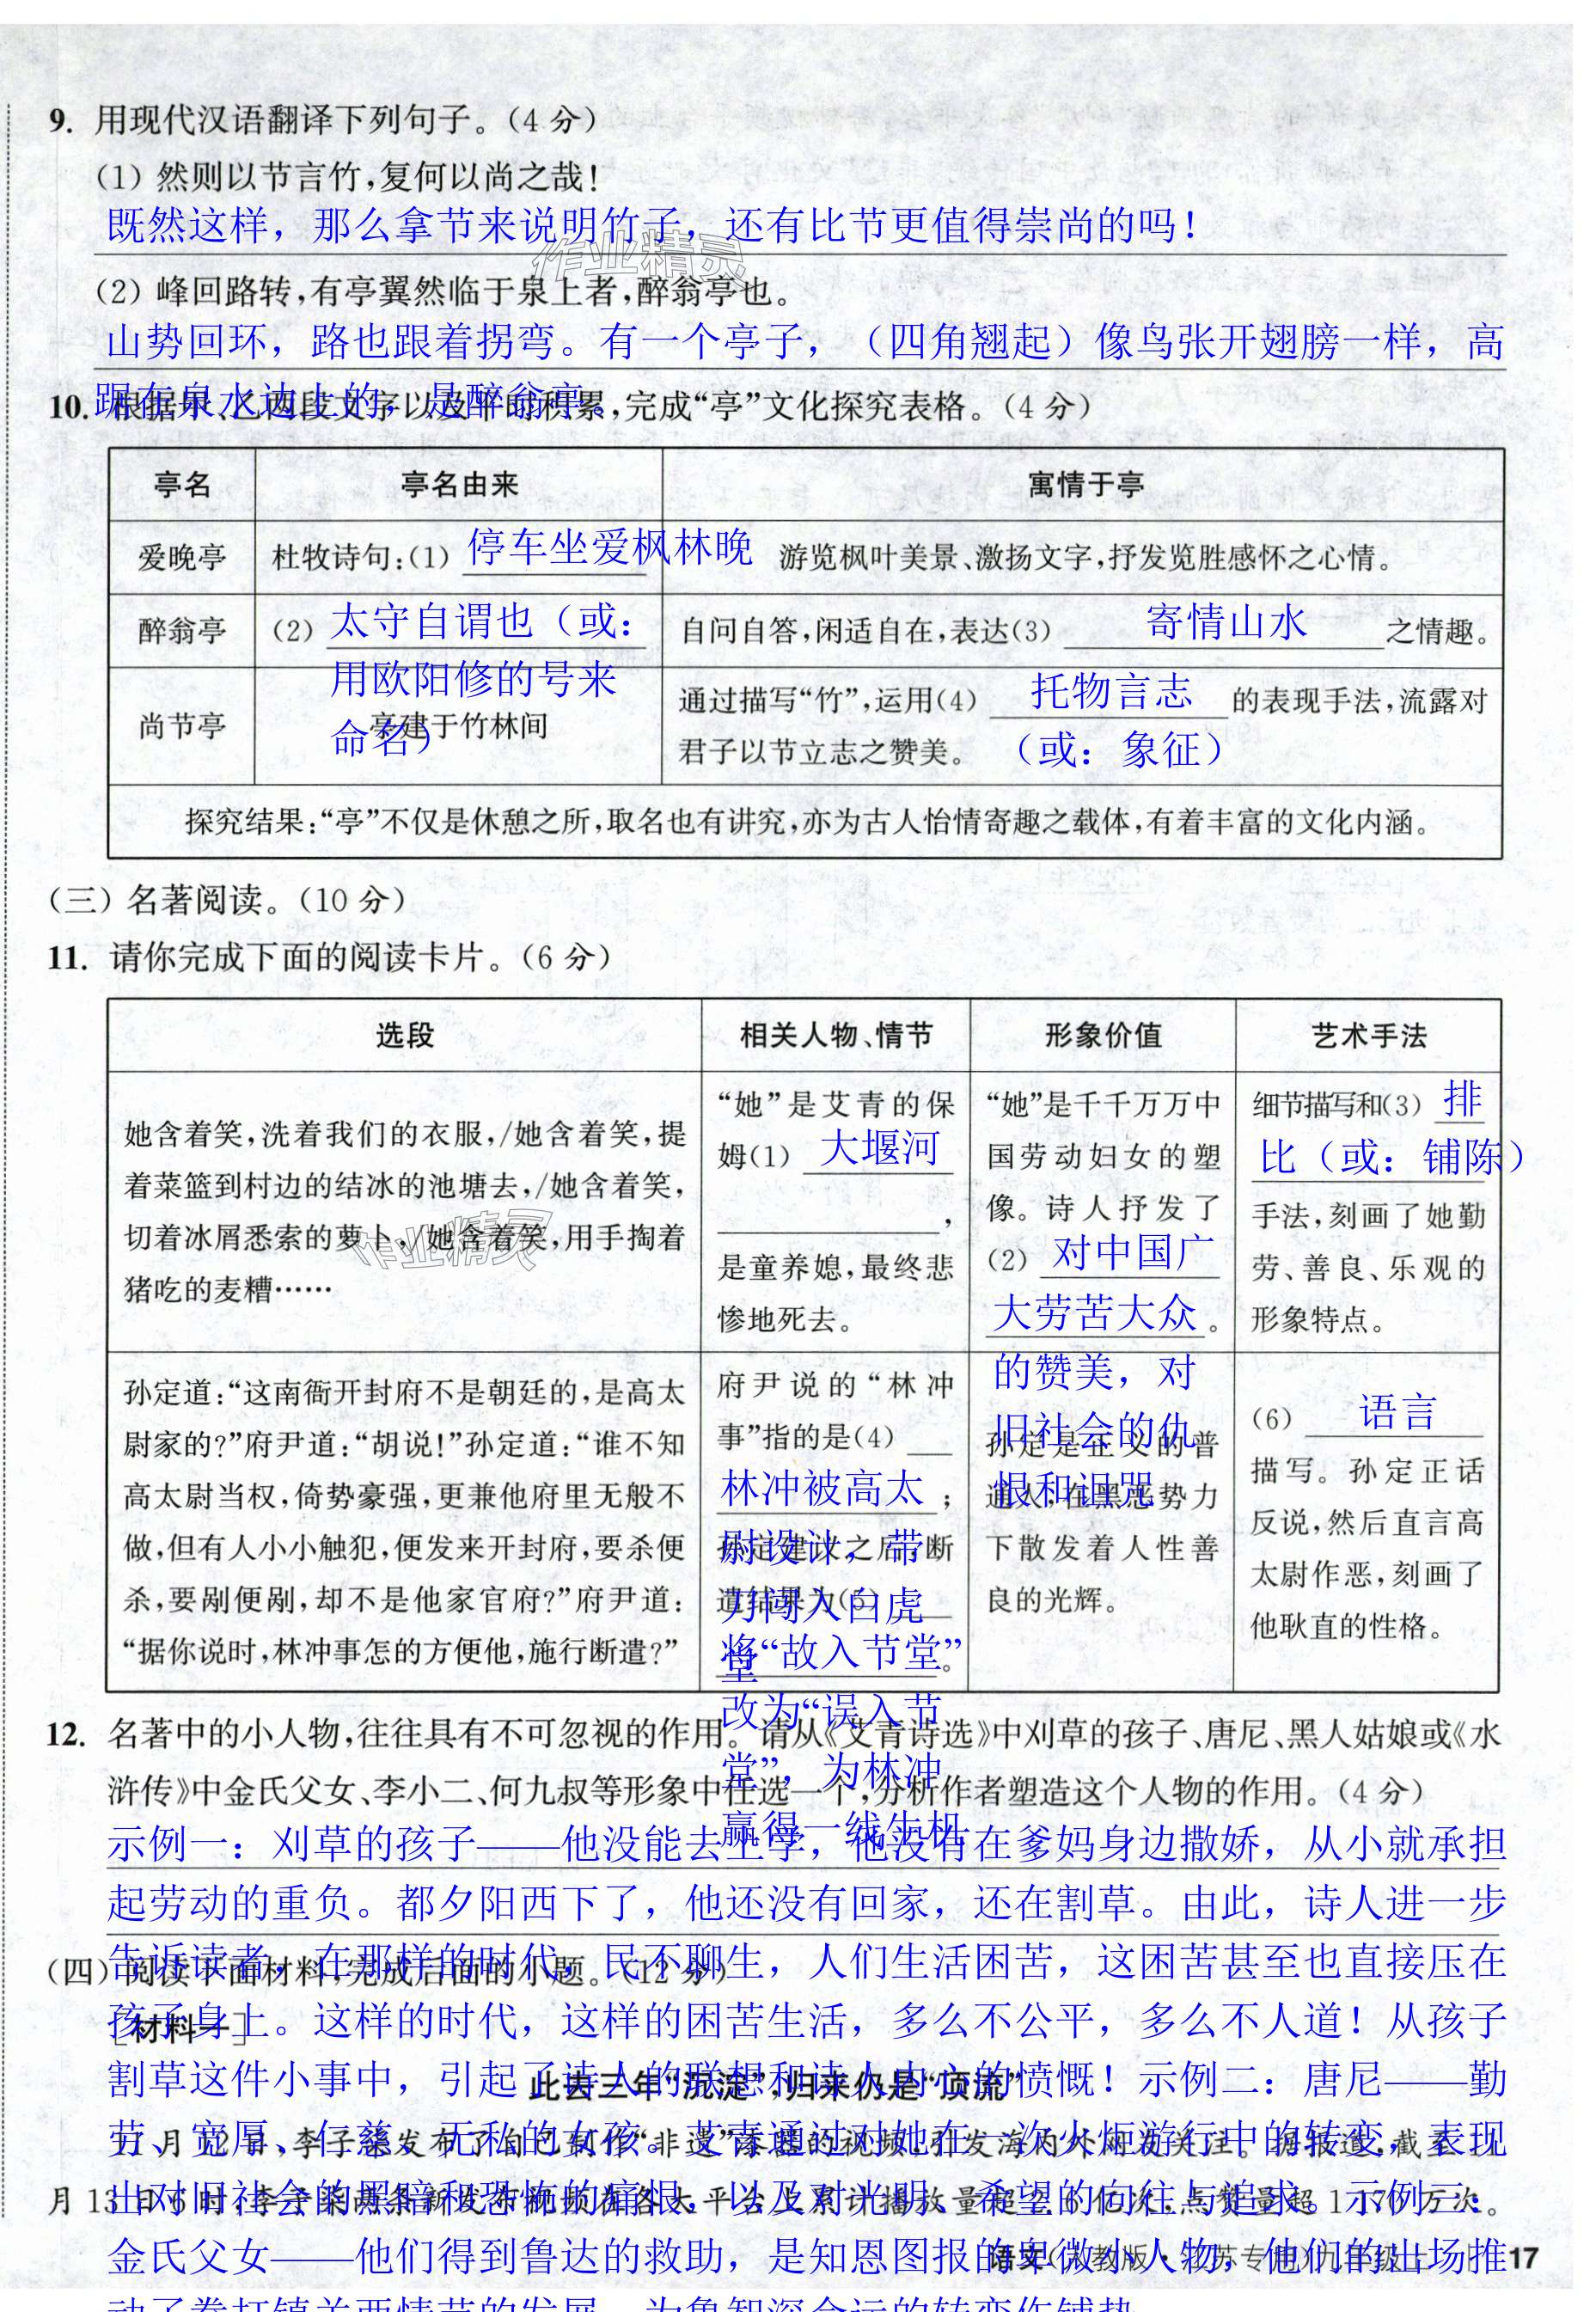 9. 用现代汉语翻译下列句子。(4 分)
(1) 然则以节言竹,复何以尚之哉!
既然这样，那么拿节来说明竹子，还有比节更值得崇尚的吗！
作业精灵
(2) 峰回路转,有亭翼然临于泉上者,醉翁亭也。
山势回环，路也跟着拐弯。有一个亭子，（四角翘起）像鸟张开翅膀一样，高
踞在泉水边上的，是醉翁亭。
10. 根据甲、乙两段文字以及平时积累,完成“亭”文化探究表格。(4 分)
亭名 亭名由来 寓情于亭
爱晚亭 杜牧诗句:(1) 停车坐爱枫林晚 游览枫叶美景、激扬文字,抒发览胜感怀之心情。
醉翁亭 (2) 太守自谓也（或：
用欧阳修的号来
命名）
自问自答,闲适自在,表达(3) 寄情山水 之情趣。
尚节亭 亭建于竹林间
通过描写“竹”,运用(4) 托物言志 的表现手法,流露对
君子以节立志之赞美。 （或：象征）
探究结果:“亭”不仅是休憩之所,取名也有讲究,亦为古人怡情寄趣之载体,有着丰富的文化内涵。
(三) 名著阅读。(10 分)
11. 请你完成下面的阅读卡片。(6 分)
选段 相关人物、情节 形象价值 艺术手法
她含着笑,洗着我们的衣服,/她含着笑,提
着菜篮到村边的结冰的池塘去,/她含着笑,
切着冰屑悉索的萝卜,/她含着笑,用手掏着
猪吃的麦糟……
作业精灵
“她”是艾青的保
姆(1) 大堰河
,
是童养媳,最终悲
惨地死去。
“她”是千千万万中
国劳动妇女的塑
像。诗人抒发了
(2) 对中国广
大劳苦大众 。
的赞美，对
旧社会的仇
恨和诅咒
细节描写和(3) 排
比（或：铺陈）
手法,刻画了她勤
劳、善良、乐观的
形象特点。
孙定道:“这南衙开封府不是朝廷的,是高太
尉家的?”府尹道:“胡说!”孙定道:“谁不知
高太尉当权,倚势豪强,更兼他府里无般不
做,但有人小小触犯,便发来开封府,要杀便
杀,要剐便剐,却不是他家官府?”府尹道:
“据你说时,林冲事怎的方便他,施行断遣?”
府尹说的“林冲
事”指的是(4)
林冲被高太 ;
尉设计，带
刀闯入白虎
堂
孙定建议之后,断
遣结果为(5)
将“故入节堂” 。
改为“误入节
堂”，为林冲
赢得一线生机
孙定是正义的普
通人,在黑恶势力
下散发着人性善
良的光辉。
(6) 语言
描写。孙定正话
反说,然后直言高
太尉作恶,刻画了
他耿直的性格。
12. 名著中的小人物,往往具有不可忽视的作用。请从《艾青诗选》中刈草的孩子、唐尼、黑人姑娘或《水
浒传》中金氏父女、李小二、何九叔等形象中任选一个,分析作者塑造这个人物的作用。(4 分)
示例一：刈草的孩子——他没能去上学，他没有在爹妈身边撒娇，从小就承担
起劳动的重负。都夕阳西下了，他还没有回家，还在割草。由此，诗人进一步
告诉读者，在那样的时代，民不聊生，人们生活困苦，这困苦甚至也直接压在
孩子身上。这样的时代，这样的困苦生活，多么不公平，多么不人道！从孩子
割草这件小事中，引起了诗人的联想和诗人内心的愤慨！示例二：唐尼——勤
劳、宽厚、仁慈、无私的女孩。艾青通过对她在一次火炬游行中的转变，表现
出对旧社会的黑暗和恐怖的痛恨，以及对光明、希望的向往与追求。示例三：
金氏父女——他们得到鲁达的救助，是知恩图报的卑微小人物，他们的出场推
(四) 阅读下面材料,完成后面的小题。(12 分)
[材料一]
此去三年“沉淀”,归来仍是“顶流”
11 月 12 日,李子柒发布了自己制作“非遗”漆器的视频,引发海内外网友关注。据报道,截至 11
月 13 日 6 时,李子柒两条新发布视频在各大平台上累计播放量超 2.6 亿次,点赞量超 1 170 万次。
语文(人教版·江苏专用)九年级上 17